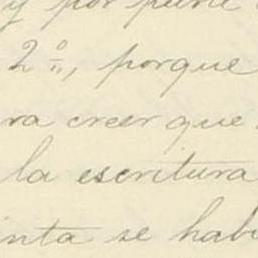 y por parte
2º, porque
ra creer que
la escritura
inta se hab